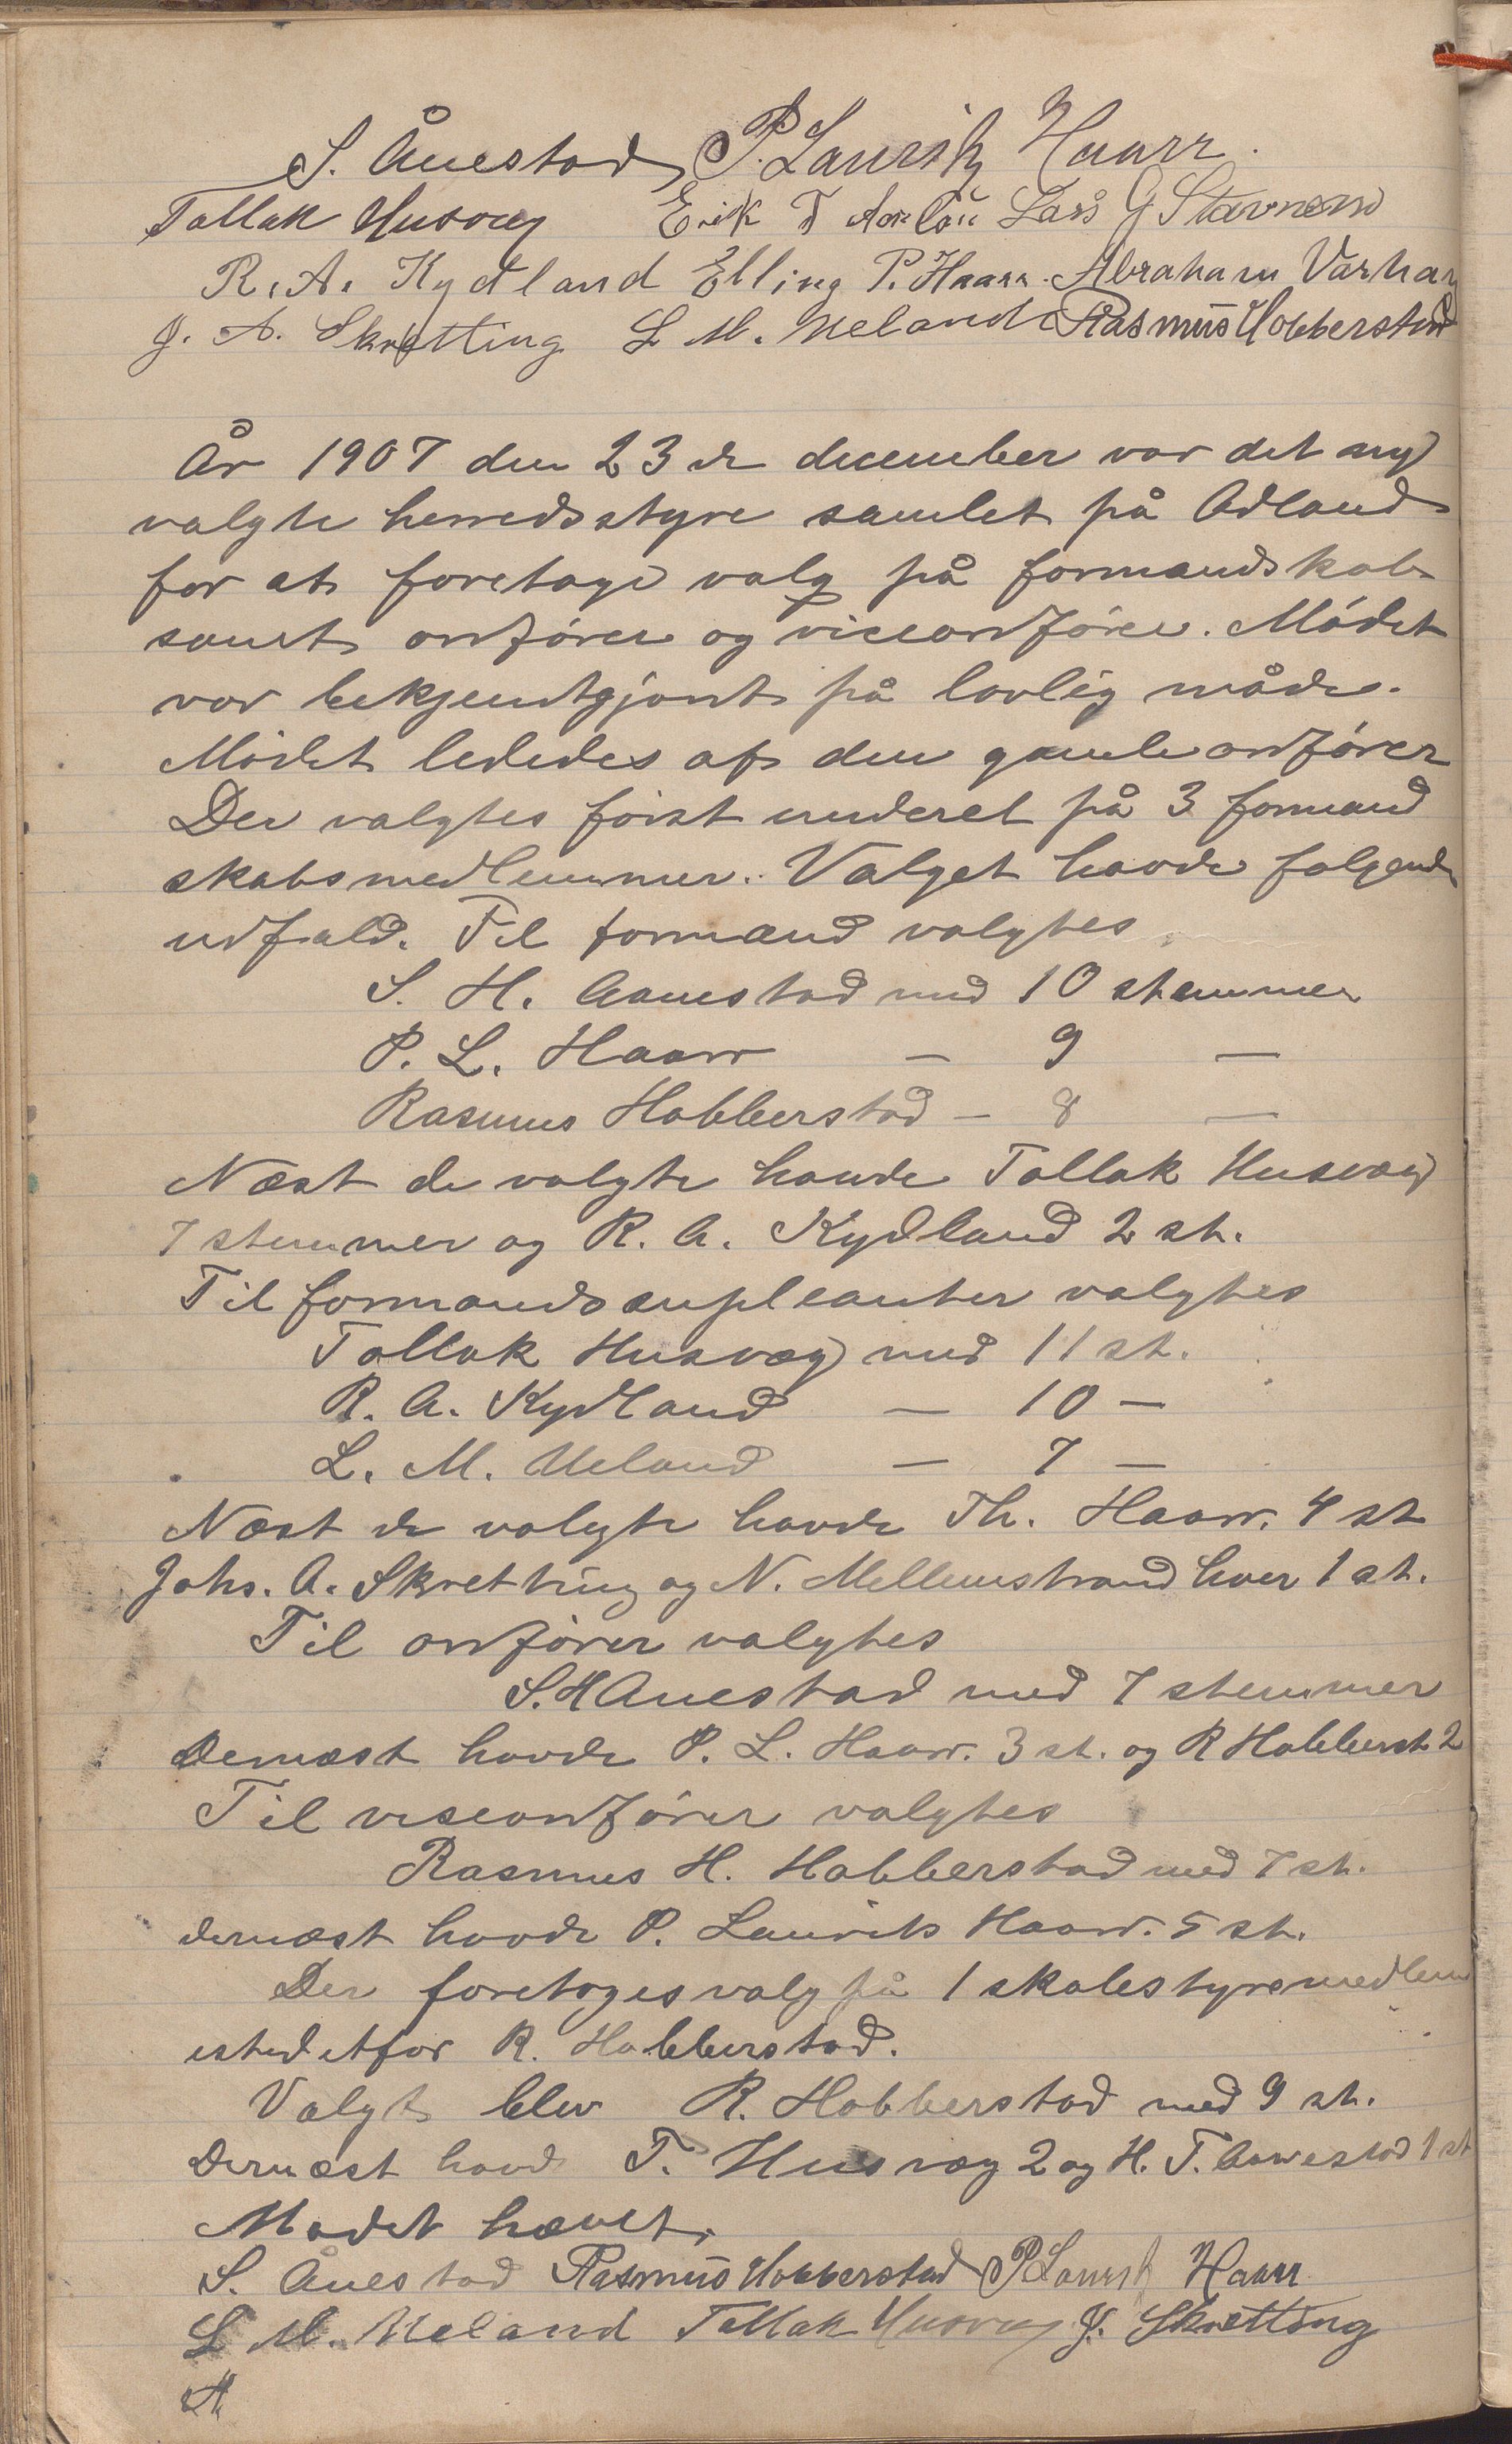 S. Ånestad P. Laurits Haarr.
Tollak Husvæg Erik T Lars G Stavnem
R. A. Kydland Elling P. Haarr. Abraham Varhaug
J. A. Skretting L M. Ueland Rasmus Hobberstad
År 1907 den 23de december var det ny
valgte herredsstyre samlet på Odland
for at foretage valg på formandskab
samt ordfører og viceordfører. Mødet
var bekjendtgjort på lovlig måde.
Mødet lededes af den gamle ordfører
Der valgtes først underet på 3 formand
skabsmedlemmer. Valget havde følgende
udfald. Til formænd valgtes
S. H. Aanestad med 10 stemmer
P. L. Haarr — 9 —
Rasmus Hobberstad — 8 —
Næst de valgte havde Tollak Husvæg
7 stemmer og R. A. Kydland 2 st.
Til formandssupleanter valgtes
Tollak Husvæg med 11 st.
R. A. Kydland — 10 —
L. M. Ueland — 7 —
Næst de valgte havde Th. Haarr. 4 st
Johs. A. Skretting og N. Mellemstrand hver 1 st.
Til ordfører valgtes
S. H Anestad med 7 stemmer
Dernæst havde P. L. Haarr. 3 st. og R Hobberst. 2
Til viseordfører valgtes
Rasmus H. Hobberstad med 7 st.
dernæst havde P. Laurits Haarr. 5 st.
Der foretoges valg på 1 skolestyremedlem
istedetfor R. Hobberstad.
Valgt blev R. Hobberstad med 9 st.
Dernæst havde T. Husvæg 2 og H. T. Aanestad 1 st
Mødet hævet.
S. Ånestad Rasmus Hobberstad P Laurits Haarr
L M. Ueland Tollak Husvæg J. Skretting